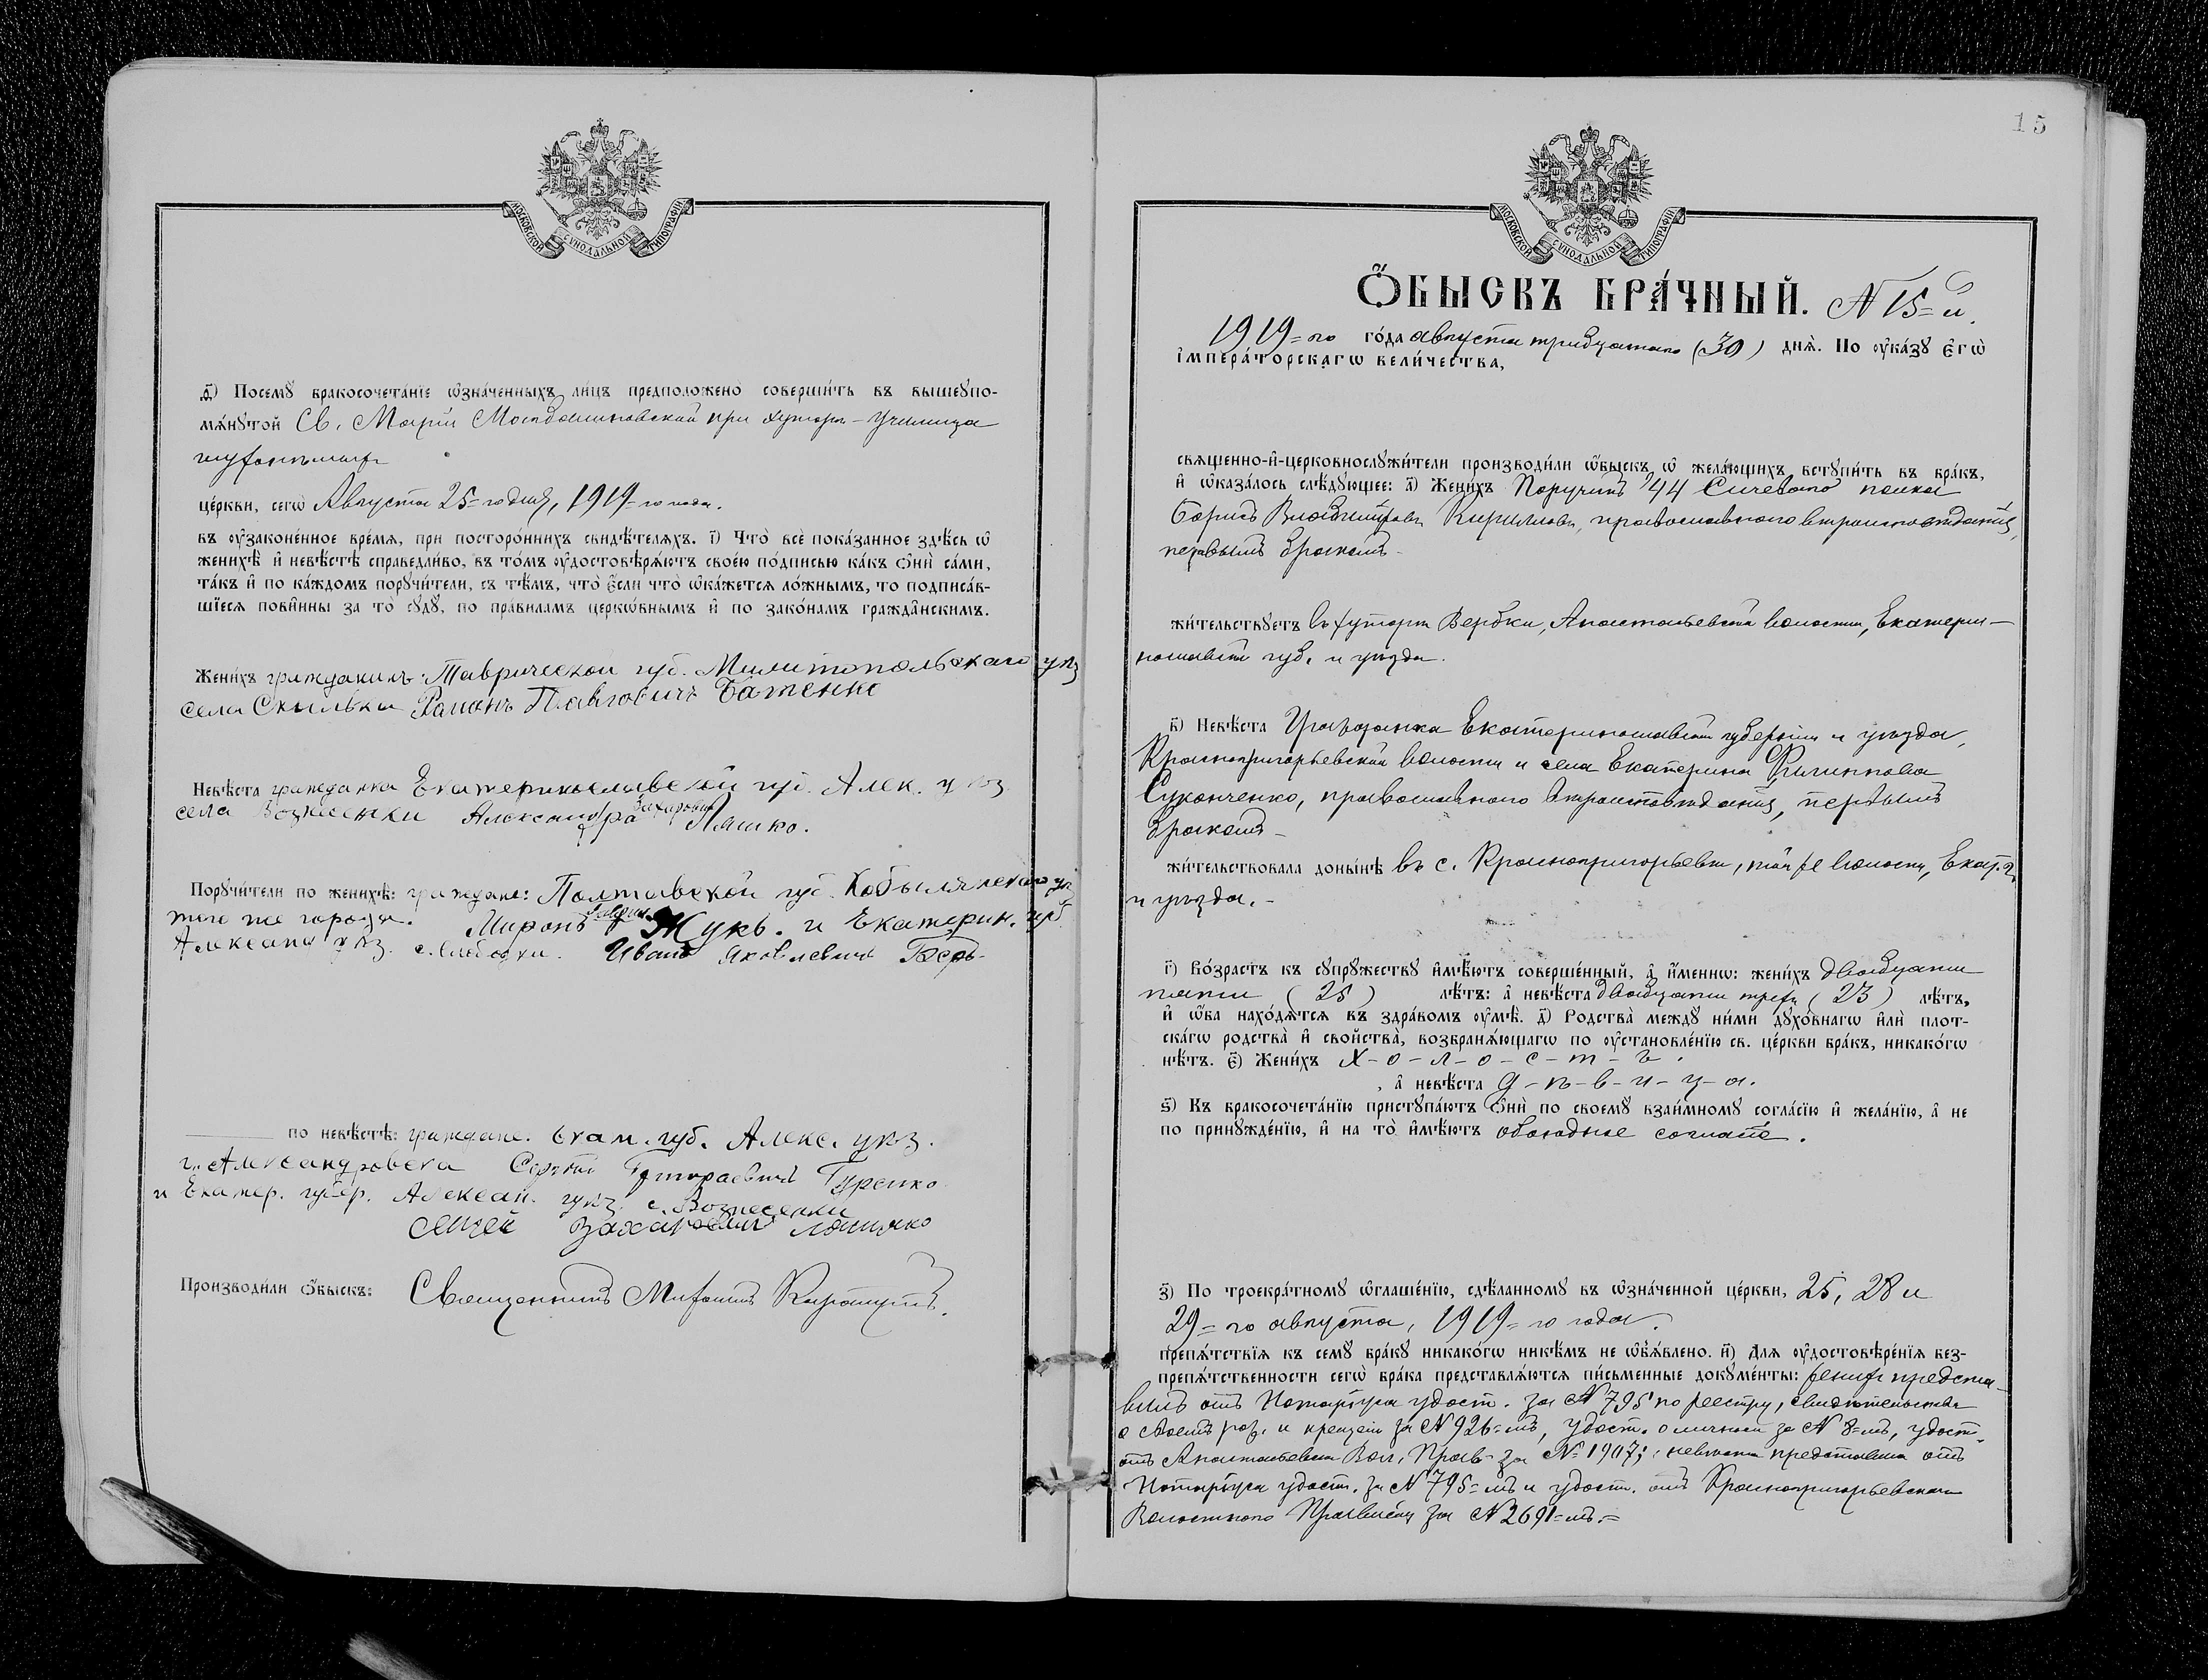 МОСКОВСКОЙ СѴНОДАЛЬНОЙ ТИПОГРАФІИ
ѳ҃) Посемꙋ̀ бракосочета́нїе ѡ҆зна́ченныхъ ли́цъ предположено̀ соверши́ть въ вышеꙋпо-
мѧ́нꙋтой Св. Маріи Магдалиновской при хуторѣ-училища
церкви, сегѡ̀ Августа 25=го дня, 1919=го года.
въ ᲂу҆зако́ненное вре́мѧ, при посторо́ннихъ свидѣ́телѧхъ. і҃) Что̀ всѐ пока́занное здѣ́сь ѡ҆
женихѣ̀ и҆ невѣ́стѣ справедли́во, въ то́мъ ᲂу҆достовѣрѧ́ютъ свое́ю по́дписью ка́къ ѻ҆нѝ са́ми,
та́къ и҆ по ка́ждомъ порꙋчи́тели, съ тѣ́мъ, что̀ є҆́сли что̀ ѡ҆ка́жетсѧ ло́жнымъ, то подписа́в-
шїесѧ пови́нны за то̀ сꙋдꙋ̀, по пра́виламъ церко́внымъ и҆ по зако́намъ гражда́нскимъ.
Жени́хъ гражданинъ: Таврической губ. Милитопольскаго уѣз
села Скельки Романъ Павловичъ Батенко
Невѣ́ста гражданка Екатеринославской губ. Алек. уѣз
Захаровна
села Вознесенки Александра Ляшко.
Порꙋчи́тели по женихѣ̀: граждане: Полтавской губ. Кобылянскаго уѣз
того же города. Миронъ Жукъ. и Екатерин. губ
Алексан уѣз. с. слободки. Иванъ Яковлевичъ
по невѣ́стѣ: граждане. Екат. губ. Алекс. уѣз.
г. Александровска Сергѣй Григораевичъ Гуренко
и Екатер. губер. Алексан. уѣз. с. Вознесенки
Захаровичъ Ляшко
Производи́ли ѻ҆́быскъ: Священникъ
15
МОСКОВСКОЙ СѴНОДАЛЬНОЙ ТИПОГРАФІИ
Ѻ҆́БЫСКЪ БРА́ЧНЫЙ. N 15=й.
1919=го го́да августа тридцатаго (30) днѧ̀. По ᲂу҆ка́зꙋ є҆гѡ̀
и҆мпера́торскагѡ вели́чества,
свѧще́нно-и҆-церковнослꙋжи́тели производи́ли ѡ҆́быскъ ѡ҆ жела́ющихъ встꙋпи́ть въ бра́къ,
и҆ ѡ҆каза́лось слѣ́дꙋющее: а҃) Жени́хъ Поручикъ 144 полка
Борисъ Владиміровъ Кирилловъ, православного вѣроисповѣданія,
первымъ бракомъ.
жи́тельствꙋетъ въ хуторѣ Вербки, Анастасьевской волости, Екатери-
нославской губ. и уѣзда.
в҃) Невѣ́ста Гражданка Екатеринославской губерніи и уѣзда,
Краснопригорьевской волости и села Екатерина Филиппова
Сухонченко, православного вѣроисповѣданія, первымъ
бракомъ
жи́тельствовала доны́нѣ въ с. Краснопригорьевкѣ, той же волости, Екат. г.
и уѣзда.
г҃) Во́зрастъ къ сꙋпрꙋ́жествꙋ и҆мѣ́ютъ соверше́нный, а҆ и҆́меннѡ: жени́хъ двадцати
пяти (25) лѣ́тъ: а҆ невѣ́ста двадцати трехъ (23) лѣ́тъ,
и҆ ѻ҆́ба нахо́дѧтсѧ въ здра́вомъ ᲂу҆мѣ̀. д҃) Родства̀ междꙋ̀ ни́ми дꙋхо́внагѡ и҆лѝ плот-
ска́гѡ родства̀ и҆ свойства̀, возбранѧ́ющагѡ по ᲂу҆становле́нїю св. це́ркви бра́къ, никако́гѡ
нѣ́тъ. є҃) Жени́хъ х-о-л-о-с-т-ъ.
, а҆ невѣ́ста д-ѣ-в-и-ц-а.
ѕ҃) Къ бракосочета́нїю пристꙋпа́ютъ ѻ҆нѝ по своемꙋ̀ взаи́мномꙋ согла́сїю и҆ жела́нїю, а҆ не
по принꙋжде́нїю, и҆ на то̀ и҆мѣ́ютъ обоюдное согласіе.
з҃) По троекра́тномꙋ ѡ҆глаше́нїю, сдѣ́ланномꙋ въ ѡ҆зна́ченной це́ркви, 25, 28 и
29=го августа, 1919=го года.
препѧ́тствїѧ къ семꙋ̀ бра́кꙋ никако́гѡ никѣ́мъ не ѡ҆б̾ѧ́влено. и҃) Для ᲂу҆достовѣре́нїѧ без-
препѧ́тственности сегѡ̀ бра́ка представлѧ́ютсѧ пи́сьменные докꙋме́нты: женихъ предста-
вилъ отъ Нотаріуса удост. за N 795 по реестру, свидѣтельство
о своемъ рож. и крещеніи за N 926=мъ, удост. о личности за N 8=мъ, удост.
отъ Анастасьевскаго Вол. Прав. за N 1907; невѣста представила отъ
Нотаріуса удост. за N 795=мъ и удост. отъ Краснопригорьевскаго
Волостного Правленія за N 2691=мъ.=